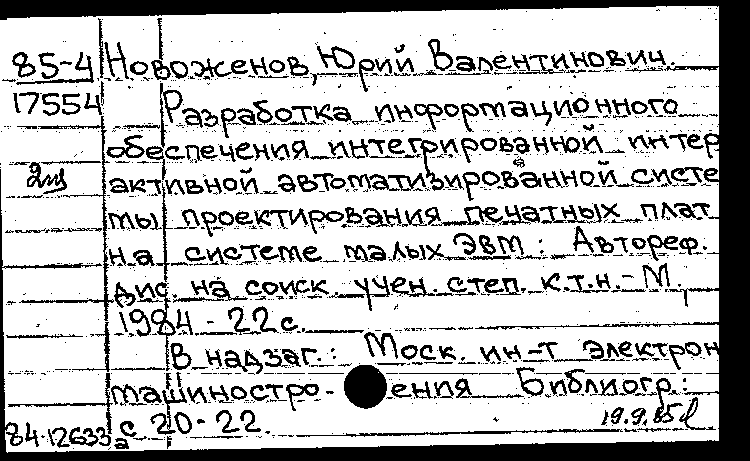 85-4 Новоженов, Юрий Валентинович.
17554 Разработка информационного
обеспечения интегрированной интер
2 активной автоматизированной систе
мы проектирования печатных плат
на системе малых ЭВМ: Автореф.
дис. на соиск. учен. степ. к.т.н.-М.,
1984 - 22 с.
В надзаг.: Моск. ин-т электрон
машиностро- ения Библиогр.:
84-12633а с 20-22. 19.9.85